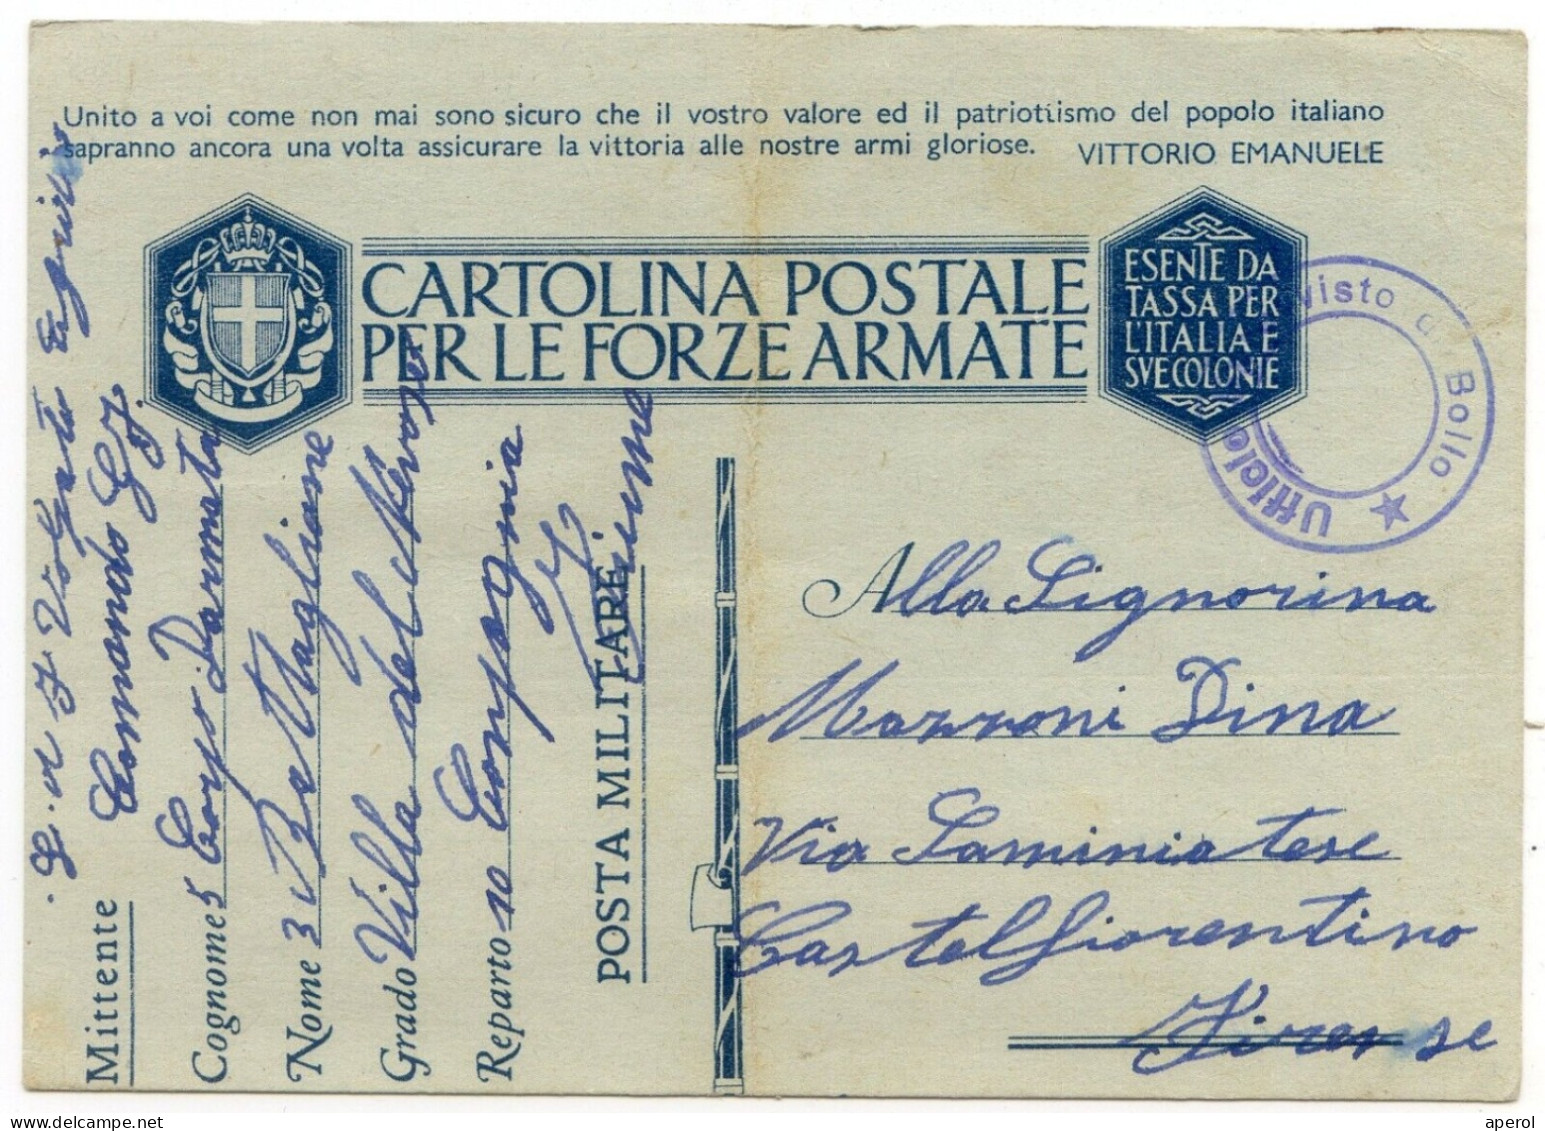 Unito a voi come non mai sono sicuro che il vostro valore ed il patriottiismo del popolo italiano
sapranno ancora una volta assicurare la vittoria alle nostre armi gloriose. VITTORIO EMANUELE
CARTOLINA POSTALE
PER LE FORZE ARMATE
ESENTE DA
TASSA PER
L'ITALIA E
SVE COLONIE
Ufficio visto di Bollo
Alla Signorina
Mazzoni Dina
Via Saminiatese
Castelfiorentino
Firense
Comando G.F.
Mittente
Cognome 5 Corpo Darmata
Nome 3 Battaglione
Grado Villa del Nevoso
Reparto 10 Conpagnia
POSTA MILITARE. Fiume
aperol